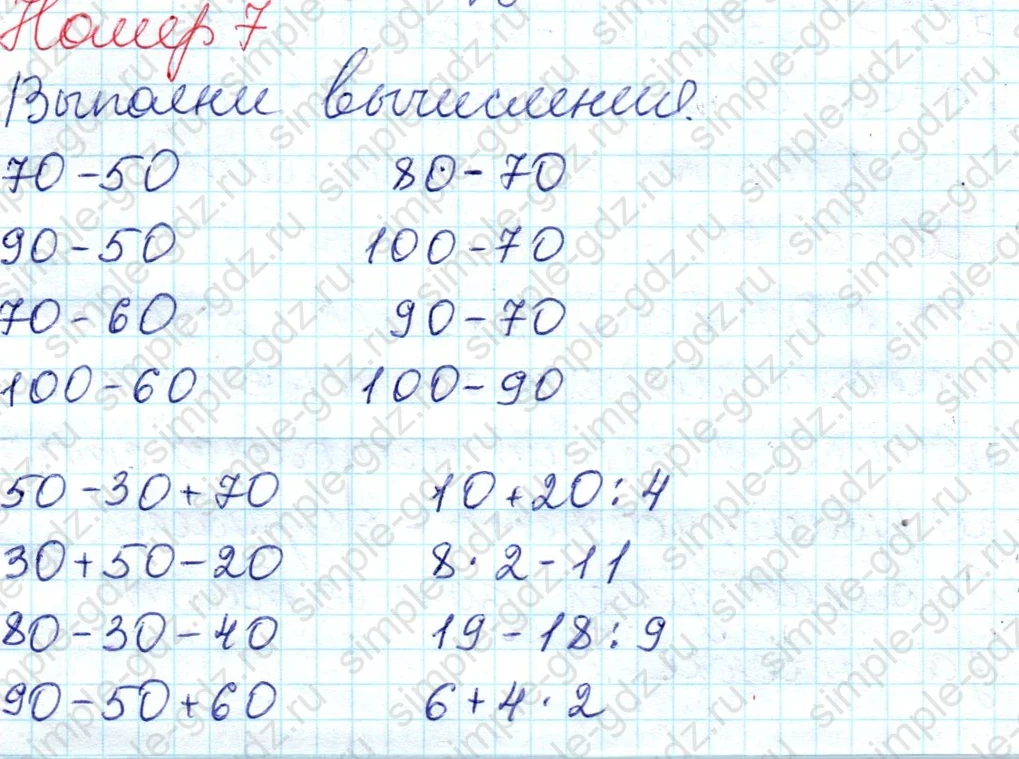 Номер 7
Выполни вычисления.
70-50 80-70
90-50 100-70
70-60 90-70
100-60 100-90
50-30+70 10+20:4
30+50-20 8·2-11
80-30-40 19-18:9
90-50+60 6+4·2
simple-gdz.ru